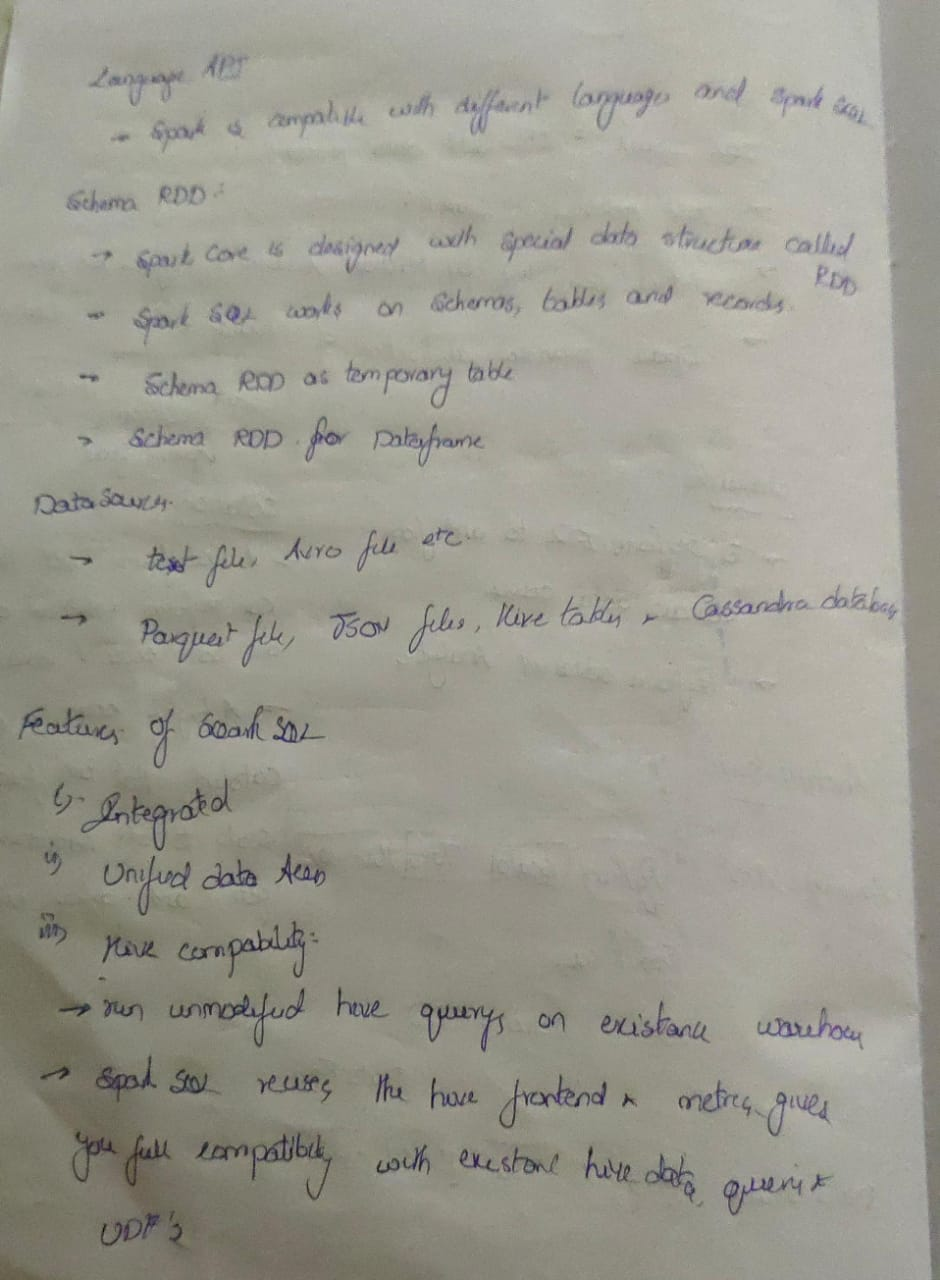 Language API
→ Spark is compatible with different languages and Spark SQL
Schema RDD:
→ Spark Core is designed with special data structure called
RDD
→ Spark SQL works on Schemas, tables and records.
→ Schema RDD as temporary table
→ Schema RDD for Dataframe
Data Sources.
→ text file, Avro file etc.
→ Parquet file, JSON files, Hive tables, Cassandra database
Features of Spark SQL
i) Integrated
ii) Unified data Access
iii) Hive compability:-
→ run unmodified hive querys on existance warehouse
→ Spark SQL reuses the hive frontend & gives
you full compatibility with existance hive data, queries &
UDF's